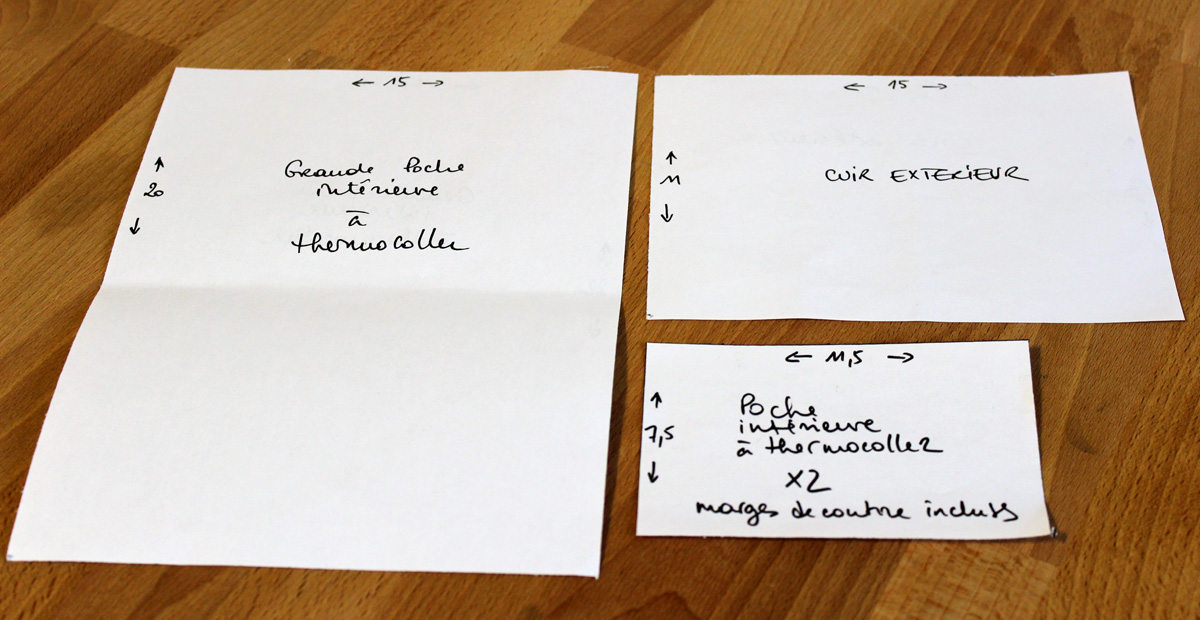 ← 15 →
↑
20
↓
Grande Poche
intérieure
à
thermocoller
← 15 →
↑
11
↓
CUIR EXTERIEUR
← 11,5 →
↑
7,5
↓
Poche
intérieure
à thermocoller
X2
marges de couture incluses